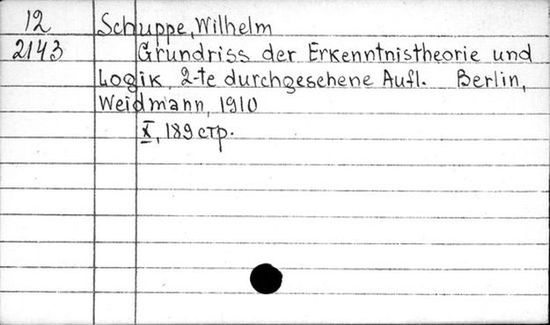 12 Schuppe, Wilhelm
2143 Grundriss der Erkenntnistheorie und
Logik, 2-te durchgesehene Aufl. Berlin,
Weidmann, 1910
X, 189 стр.